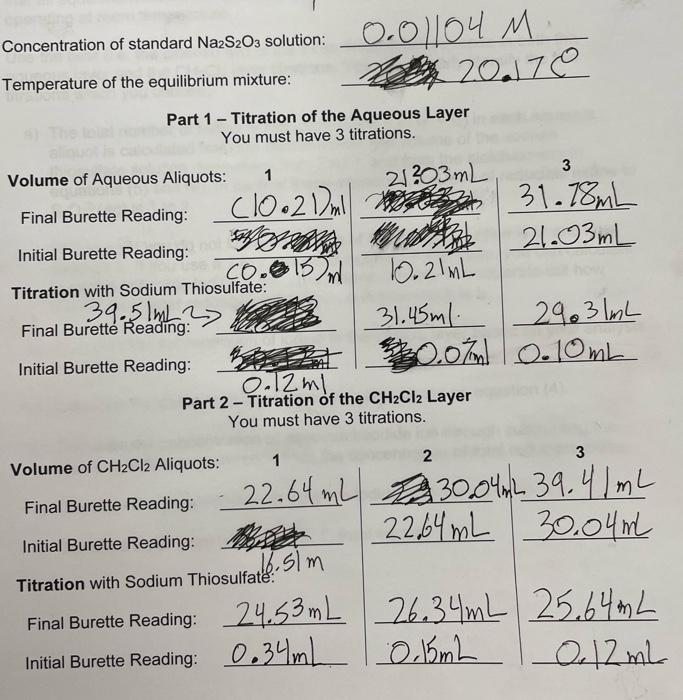 Concentration of standard Na2S2O3 solution: 0.01104 M
Temperature of the equilibrium mixture: 20.17C
Part 1 – Titration of the Aqueous Layer
You must have 3 titrations.
Volume of Aqueous Aliquots: 1 2 3
Final Burette Reading: (10.21)ml 21.03mL 31.78mL
Initial Burette Reading: (0.15)ml 10.21mL 21.03mL
Titration with Sodium Thiosulfate:
Final Burette Reading: 39.51mL 31.45ml. 29.31mL
Initial Burette Reading: 0.12ml 0.07ml 0.10mL
Part 2 – Titration of the CH2Cl2 Layer
You must have 3 titrations.
Volume of CH2Cl2 Aliquots: 1 2 3
Final Burette Reading: 22.64 mL 30.04mL 39.41mL
Initial Burette Reading: 16.51m 22.64mL 30.04ml
Titration with Sodium Thiosulfate:
Final Burette Reading: 24.53mL 26.34mL 25.64mL
Initial Burette Reading: 0.34mL 0.15mL 0.12mL